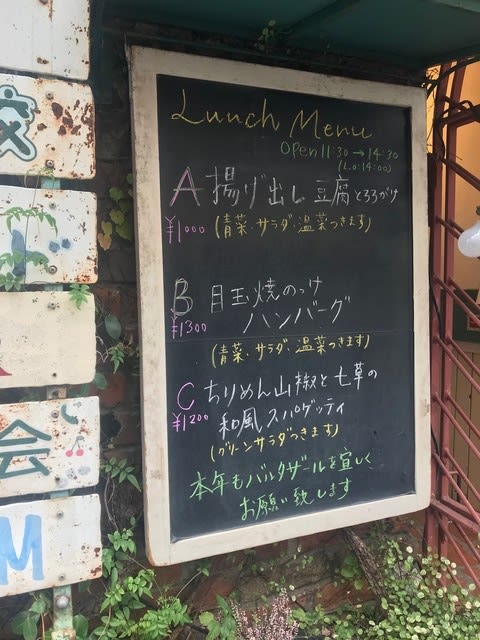 Lunch Menu
OPEN 11:30 → 14:30
(L.O:14:00)
A 揚げ出し豆腐とろろがけ
¥1000 (青菜・サラダ・温菜つきます)
B 目玉焼のっけ
¥1300 ハンバーグ
(青菜・サラダ・温菜つきます)
C ちりめん山椒と七草の
¥1200 和風スパゲッティ
(グリーンサラダつきます)
本年もバルタザールを宜しく
お願い致します
会
M